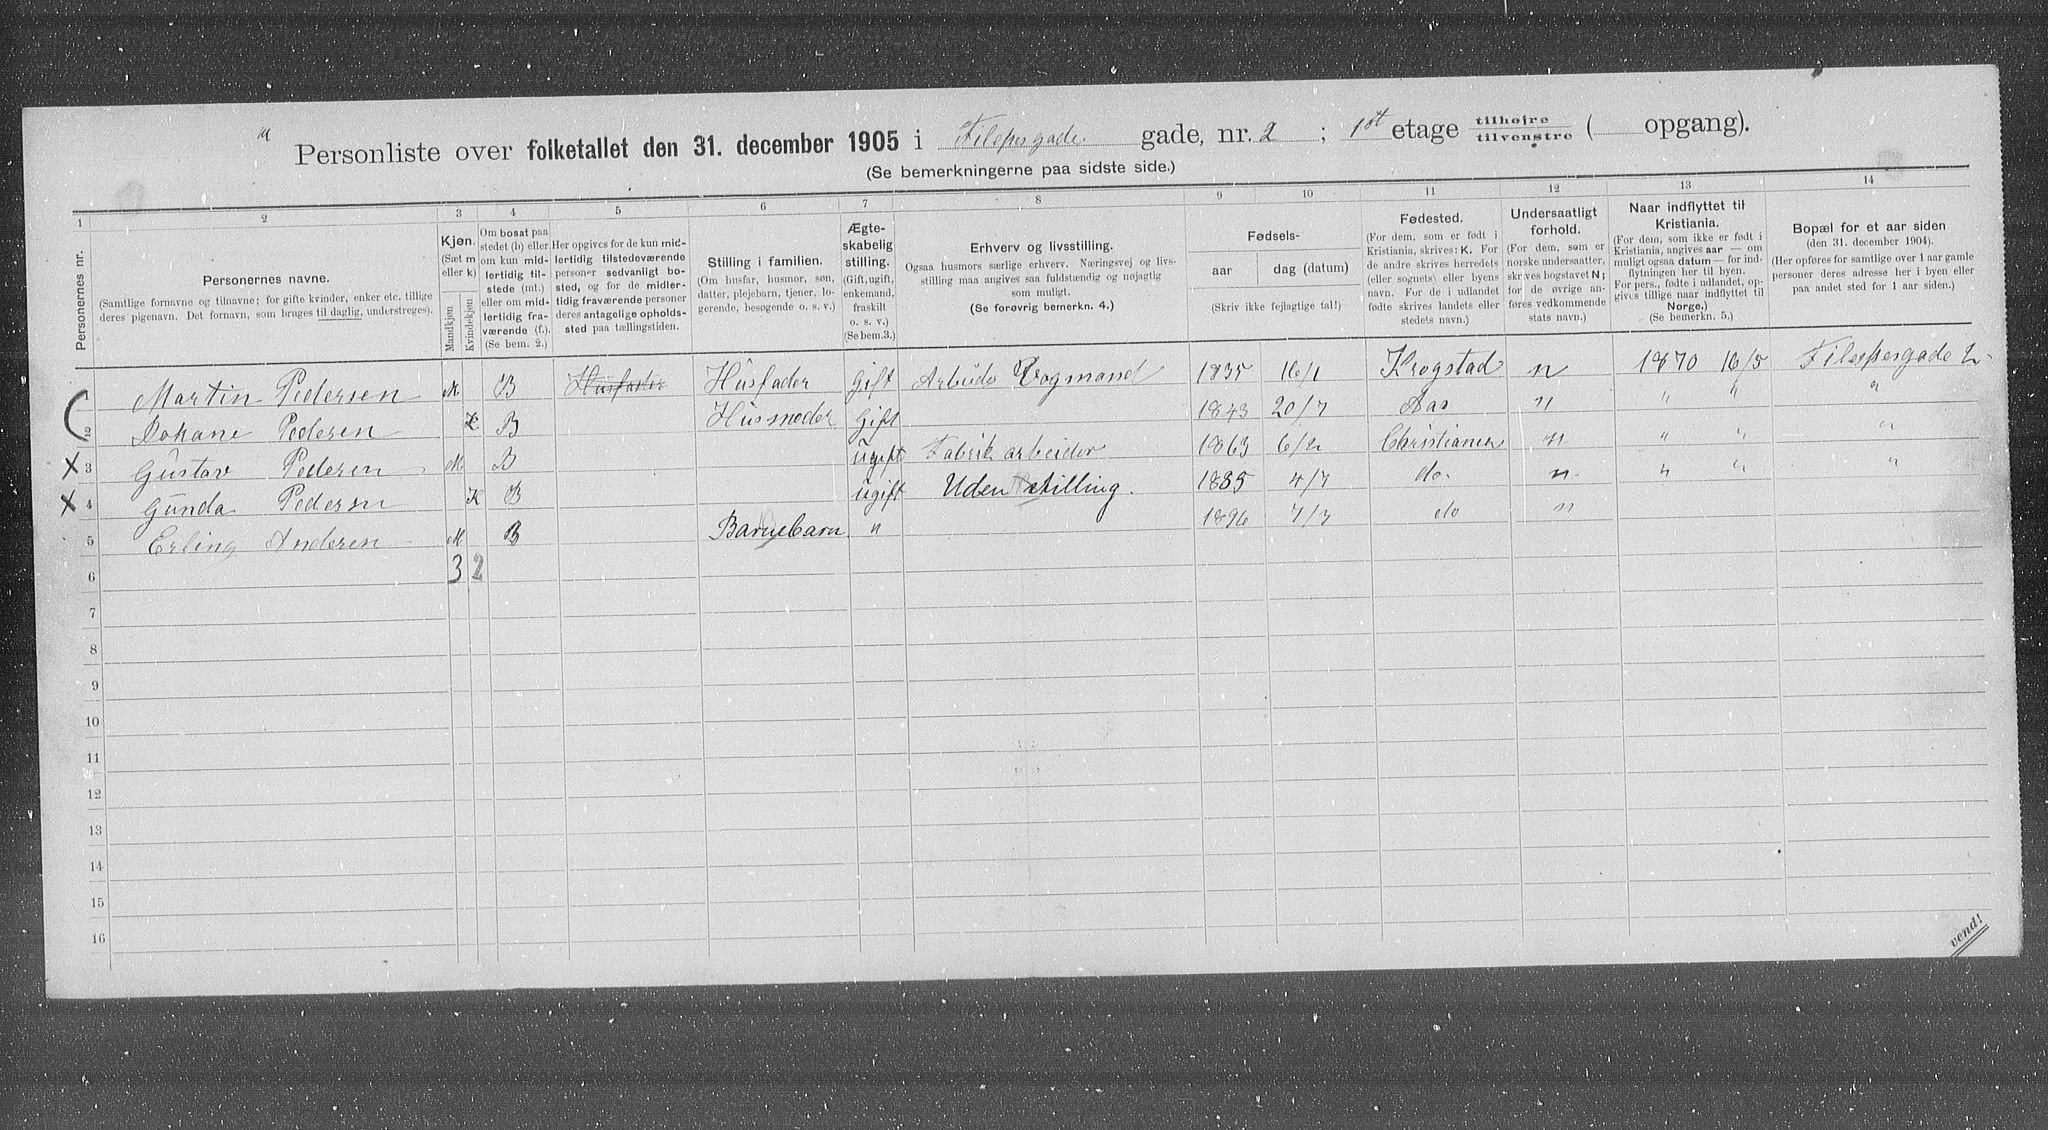 Personliste over folketallet den 31. december 1905 i Filepsgade. gade, nr. 2 ; 1st etage tilhøire / tilvenstre ( opgang).
(Se bemerkningerne paa sidste side.)
1 2 3 4 5 6 7 8 9 10 11 12 13 14
Personernes nr.
Personernes navne.
(Samtlige fornavne og tilnavne; for gifte kvinder, enker etc. tillige deres pigenavn. Det fornavn, som bruges til daglig, understreges).
Kjøn.
(Sæt m eller k)
Mandkjøn
Kvindekjøn
Om bosat paa stedet (b) eller om kun midlertidig tilstede (mt.) eller om midlertidig fraværende (f.). (Se bem. 2.)
Her opgives for de kun midlertidig tilstedeværende personer sedvanligt bosted, og for de midlertidig fraværende personer deres antagelige opholdssted paa tællingstiden.
Stilling i familien.
(Om husfar, husmor, søn, datter, plejebarn, tjener, logerende, besøgende o. s. v.)
Ægteskabelig stilling.
(Gift, ugift, enkemand, fraskilt o. s. v.)
(Se bem. 3.)
Erhverv og livsstilling.
Ogsaa husmors særlige erhverv. Næringsvej og livsstilling maa angives saa fuldstændig og nøjagtig som muligt.
(Se forøvrig bemerkn. 4.)
Fødsels-
aar
dag (datum)
(Skriv ikke fejlagtige tal!)
Fødested.
(For dem, som er født i Kristiania, skrives: K. For de andre skrives herredets (eller sognets) eller byens navn. For de i udlandet fødte skrives landets eller stedets navn.)
Undersaatligt forhold.
(For dem, som er norske undersaatter, skrives bogstavet N; for de øvrige anføres vedkommende stats navn.)
Naar indflyttet til Kristiania.
(For dem, som ikke er født i Kristiania, angives aar — om muligt ogsaa datum — for indflytningen her til byen. For pers., fødte i udlandet, opgives tillige naar indflyttet til Norge.)
(Se bemerkn. 5.)
Bopæl for et aar siden
(den 31. december 1904).
(Her opføres for samtlige over 1 aar gamle personer deres adresse her i byen eller paa andet sted for 1 aar siden.)
1 Martin Pedersen M B Husfader Husfader Gift Arbeids Vogmand 1835 16/1 Krogstad n 1870 16/5 Filepsgade 2
2 Dohane Pedersen K B Husmoder Gift 1843 20/7 Aas n " " "
3 Gustav Pedersen M B ugift Fabrik arbeider 1863 6/2 Christiania n " " "
4 Gunda Pedersn K B ugift Uden stilling. 1885 4/7 do. n " " "
5 Erling Andersen M B Barnebarn " 1896 7/3 do n
6 3 2
7
8
9
10
11
12
13
14
15
16
vend!